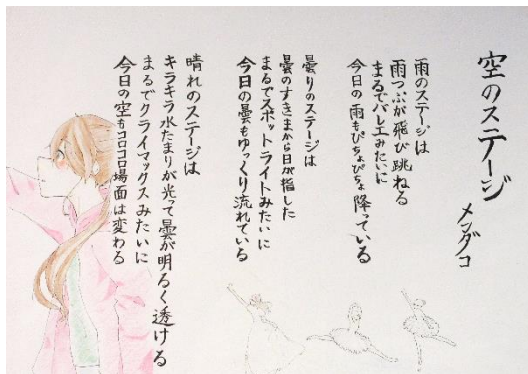 空のステージ
メンダコ
雨のステージは
雨つぶが飛び跳ねる
まるでバレエみたいに
今日の雨もぴちょぴちょ降っている
曇りのステージは
曇のすきまから日が指した
まるでスポットライトみたいに
今日の曇もゆっくり流れている
晴れのステージは
キラキラ水たまりが光って曇が明るく透ける
まるでクライマックスみたいに
今日の空もコロコロ場面は変わる